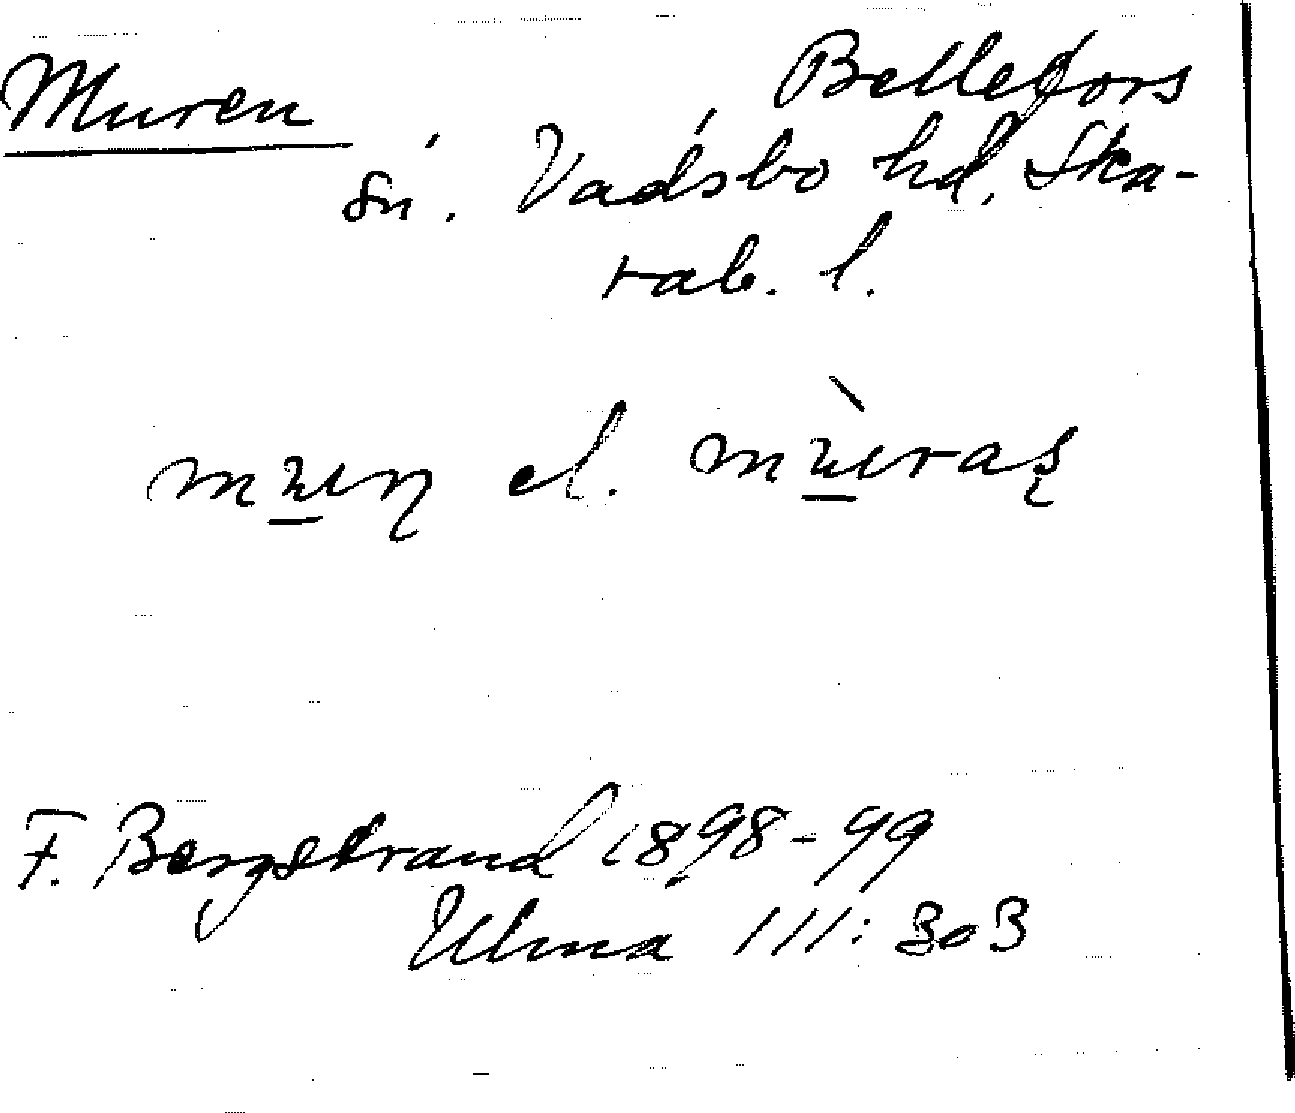 Muren
Bellefors
sn. Vadsbo hd. Ska-
rab. l.
el.
F. Bergstrand 1898-99
Ulma 111:303